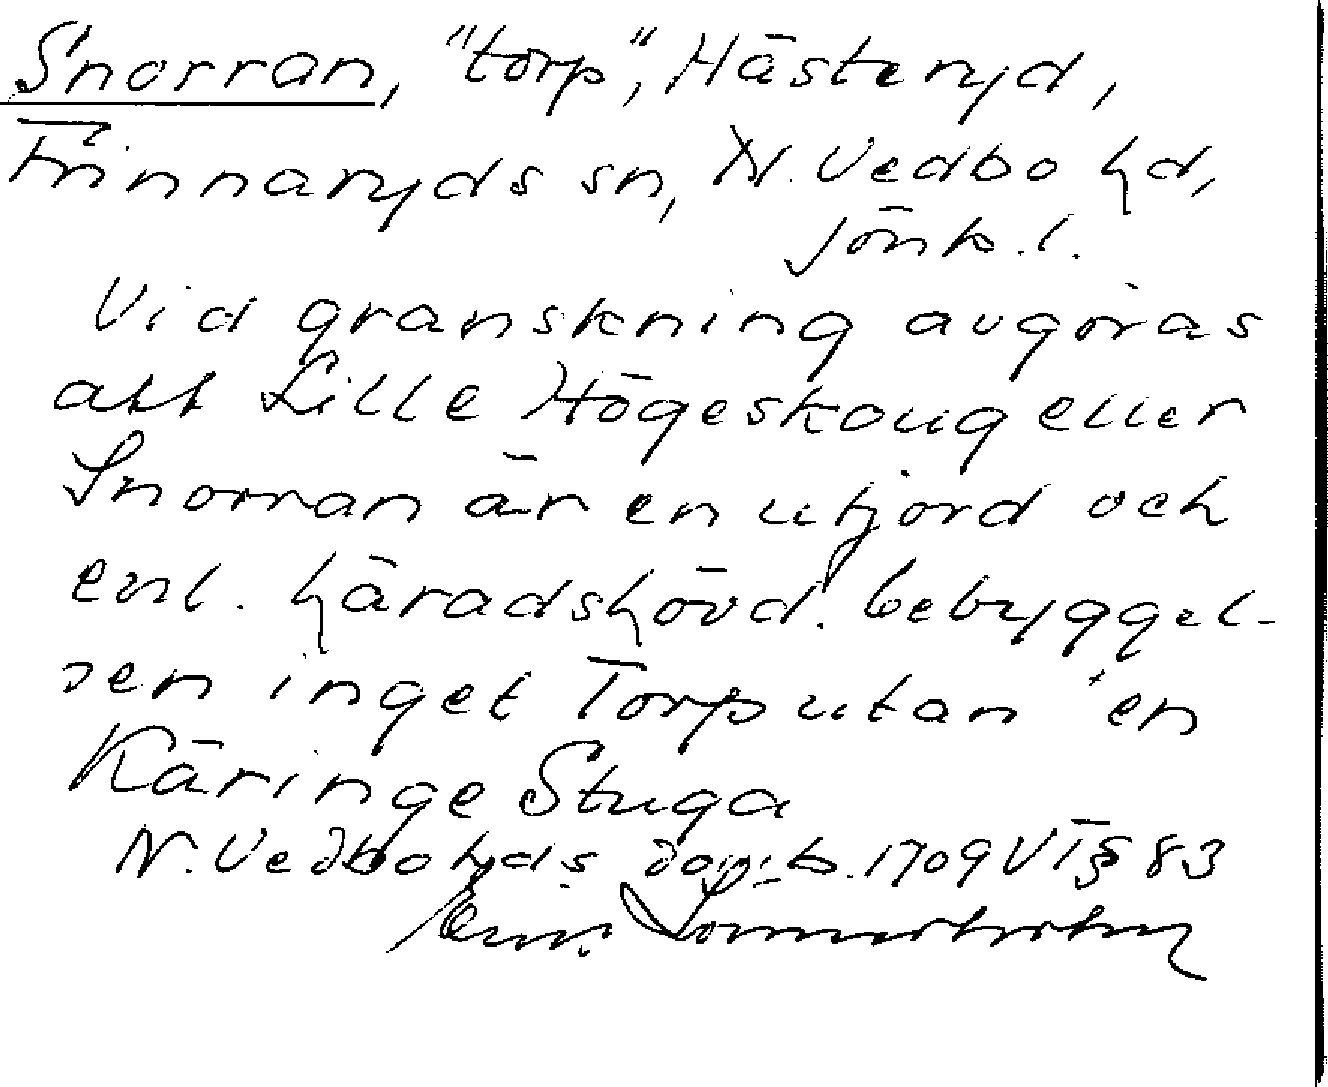 Snorran, "torp", Hästeryd,
Frinnaryds sn, N. Vedbo hd,
Jönk. l.
Vid granskning avgöras
att Lille Högeskoug eller
Snorran är en utjord och
enl. häradshövd. bebyggel-
sen inget Torp utan en
Käringe Stuga
N. Vedbo hds domb. 1709 VI § 83